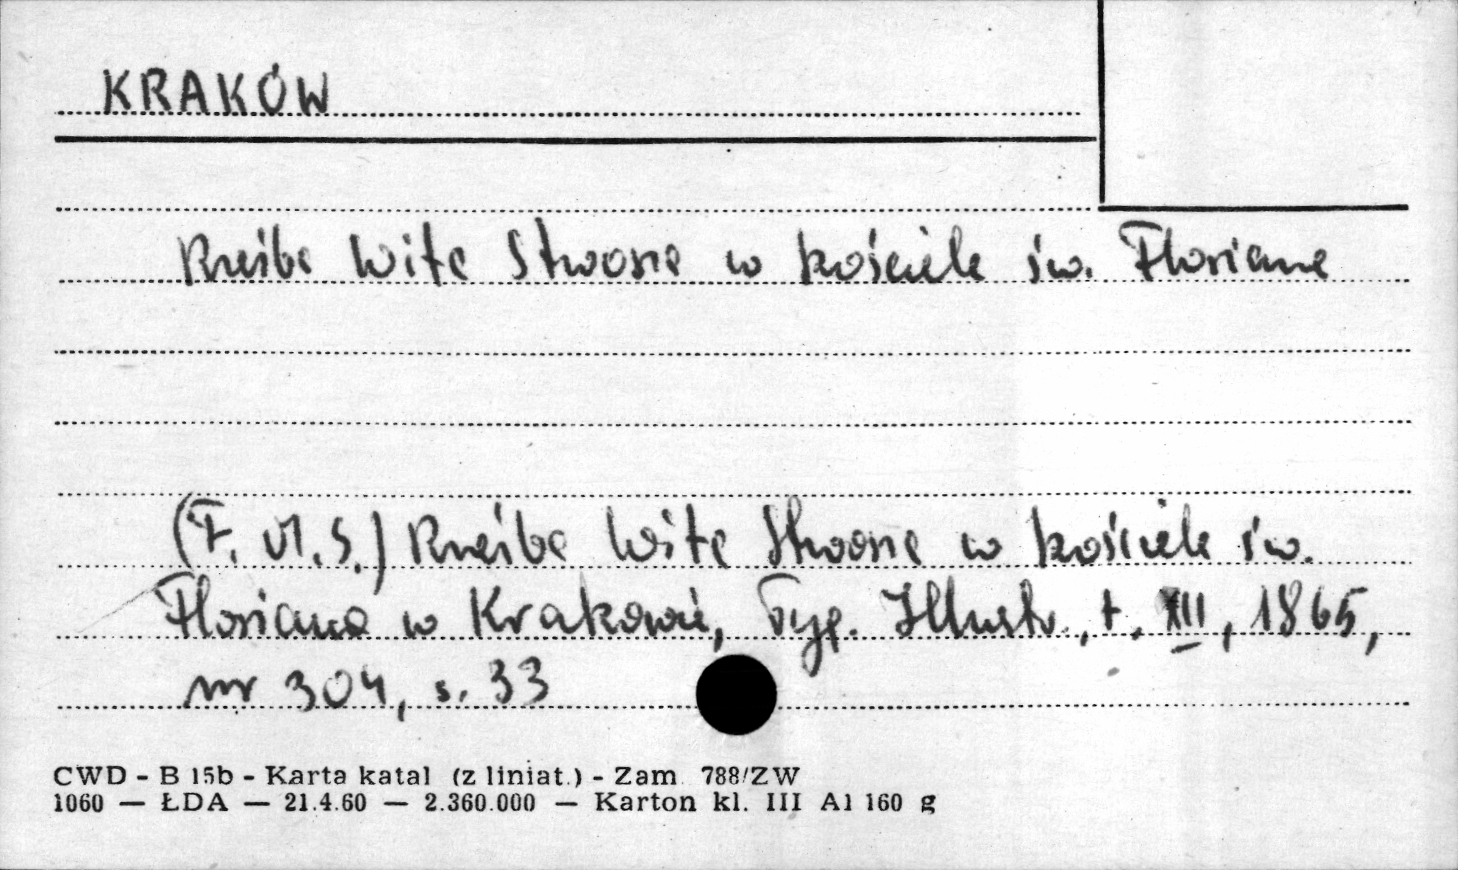 KRAKÓW
Rzeźba Wita Stwosza w kościele św. Floriana
(F. M. S.) Rzeźba Wita Stwosza w kościele św.
Floriana w Krakowie, Tyg. Illustr., t. XII, 1865,
nr 304, s. 33
CWD - B 15b - Karta katal (z liniat.) - Zam. 788/ZW
1060 — ŁDA — 21.4.60 — 2.360.000 — Karton kl. III A1 160 g